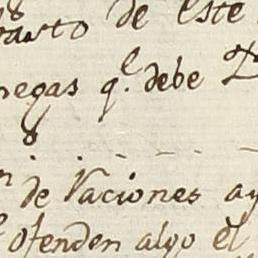 de este
negas q.e debe
8
de Raciones ay
ofenden algo el